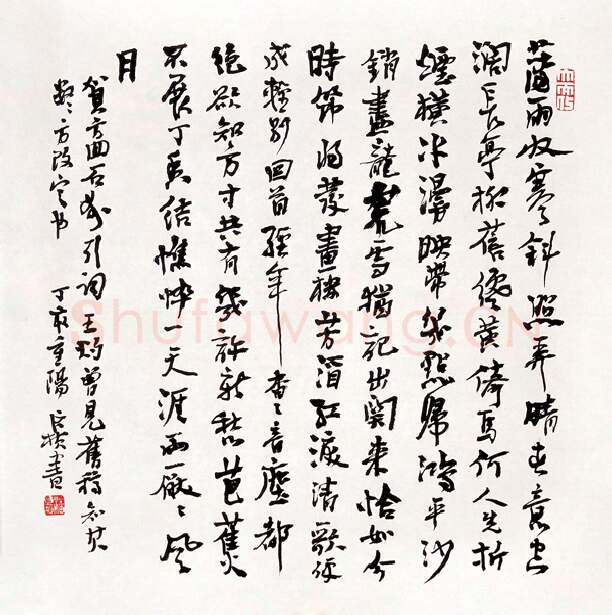 薄雨收寒斜照弄晴春意空
闊長亭柳蓓纔黃倚馬何人先折
煙橫水漫映帶幾點歸鴻平沙
銷盡龍荒雪猶記出關來恰如今
時節將發畫樓芳酒紅淚清歌便
成輕別回首經年杳〻音塵都
絕欲知方寸共有幾許新愁芭蕉
不展丁香結憔悴一天涯兩厭〻風
月
賀方回石州引詞王灼曾見舊稿知其
方改定书 丁亥重陽 書
Shufawang.CN